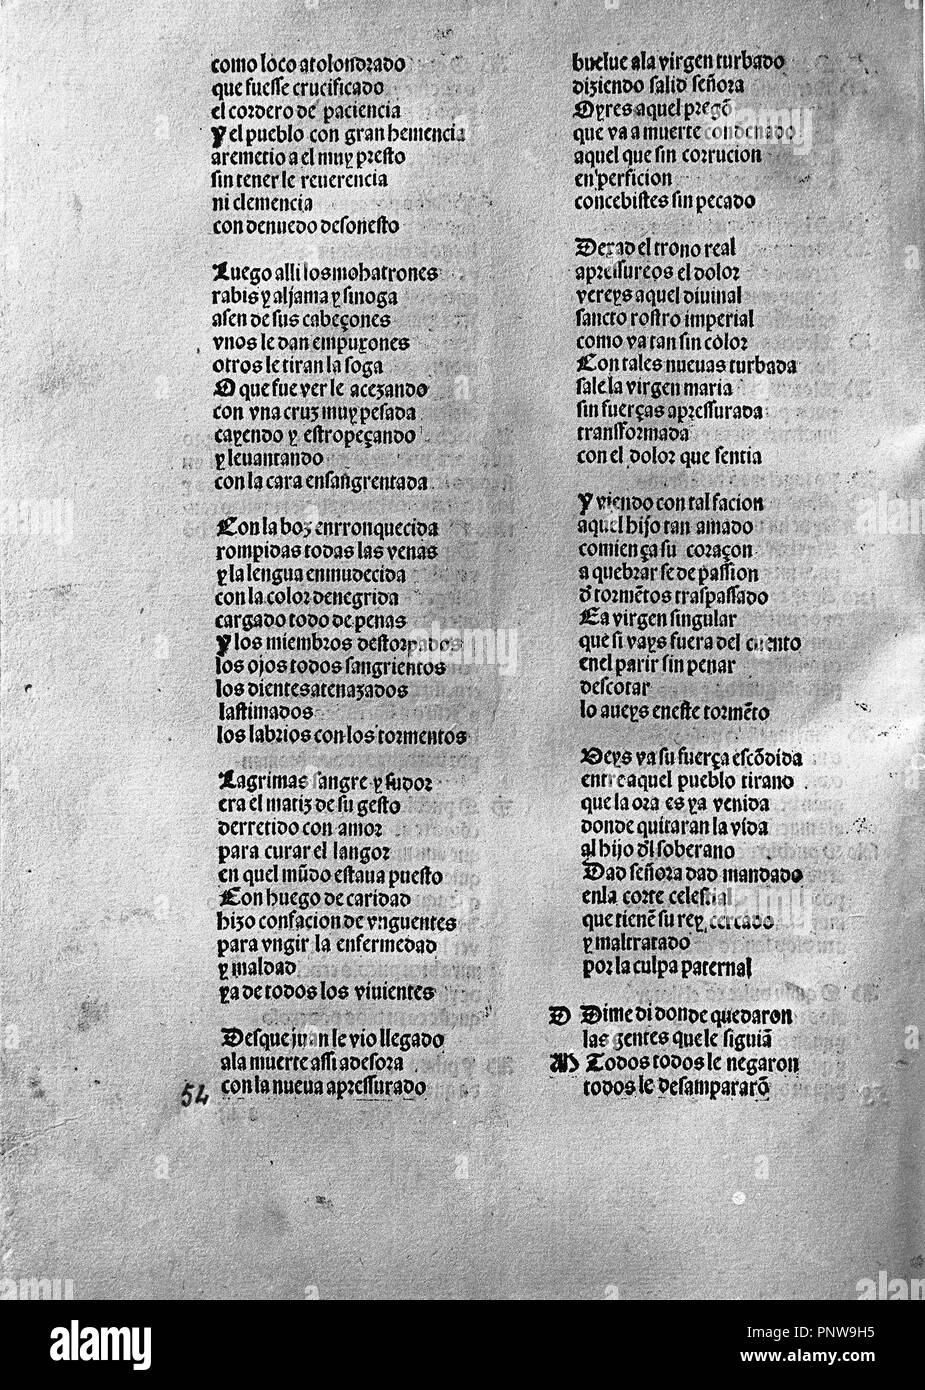 como loco atolondrado
que fuesse crucificado
el cordero de paciencia
Y el pueblo con gran hemencia
aremetio a el muy presto
sin tener le reuerencia
ni clemencia
con denuedo desonesto
Luego alli los mohatrones
rabis y aljama y sinoga
asen de sus cabeçones
vnos le dan empuxones
otros le tiran la soga
O que fue ver le acezando
con vna cruz muy pesada
cayendo y estropeçando
y leuantando
con la cara ensangrentada
Con la boz enrronquecida
rompidas todas las venas
y la lengua enmudecida
con la color denegrida
cargado todo de penas
Y los miembros destorpados
los ojos todos sangrientos
los dientes atenazados
lastimados
los labrios con los tormentos
Lagrimas sangre y sudor
era el matiz de su gesto
derretido con amor
para curar el langor
en quel mũdo estaua puesto
Con huego de caridad
hizo confacion de vnguentes
para vngir la enfermedad
y maldad
ya de todos los viuientes
Desque juan le vio llegado
ala muerte assi adesora
con la nueua apressurado
54
buelue ala virgen turbado
diziendo salid señora
Oyres aquel pregõ
que va a muerte condenado
aquel que sin corrucion
en perficion
concebistes sin pecado
Dexad el trono real
apressureos el dolor
vereys aquel diuinal
sancto rostro imperial
como va tan sin color
Con tales nueuas turbada
sale la virgen maria
sin fuerças apressurada
transformada
con el dolor que sentia
Y viendo con tal facion
aquel hijo tan amado
comiença su coraçon
a quebrar se de passion
d̃ tormẽtos traspassado
Ea virgen singular
que si vays fuera del cuento
enel parir sin penar
descotar
lo aueys eneste tormẽto
Veys va su fuerça escõdida
entre aquel pueblo tirano
que la ora es ya venida
donde quitaran la vida
al hijo d̃l soberano
Dad señora dad mandado
enla corte celestial
que tienẽ su rey cercado
y maltratado
por la culpa paternal
D Dime di donde quedaron
las gentes que le siguiã
M Todos todos le negaron
todos le desampararõ
alamy
Image ID: PNW9H5
www.alamy.com